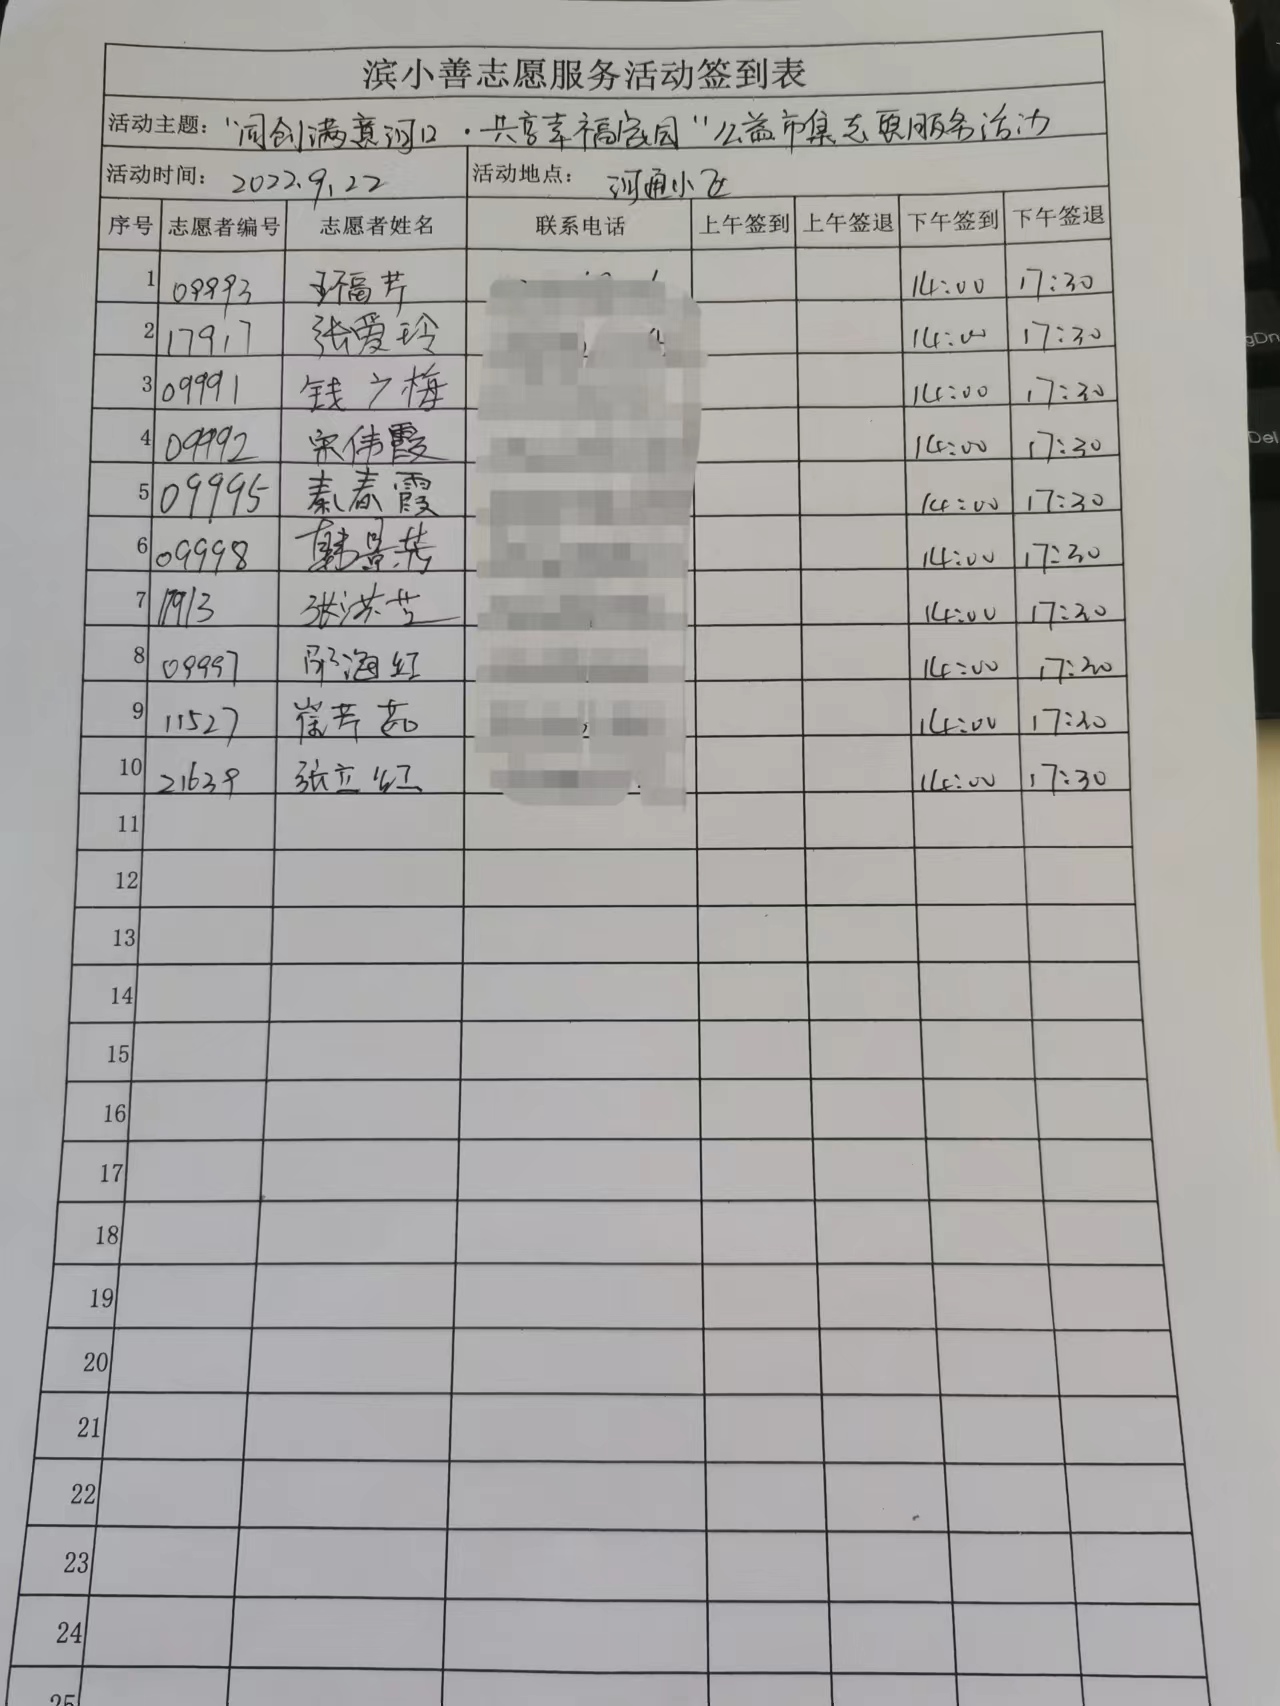 滨小善志愿服务活动签到表
活动主题："同创满意河口·共享幸福家园"公益市集志愿服务活动
活动时间：2022.9.22 活动地点：河通小区
序号 志愿者编号 志愿者姓名 联系电话 上午签到 上午签退 下午签到 下午签退
1 09993 福芹 14:00 17:30
2 17917 张爱玲 14:00 17:30
3 09991 钱广梅 14:00 17:30
4 09992 宋伟霞 14:00 17:30
5 09995 秦春霞 14:00 17:30
6 09998 韩景芬 14:00 17:30
7 张洪芝 14:00 17:30
8 09997 海红 14:00 17:30
9 11527 崔芹茹 14:00 17:30
10 21639 张立红 14:00 17:30
11
12
13
14
15
16
17
18
19
20
21
22
23
24
25
gDn
Del